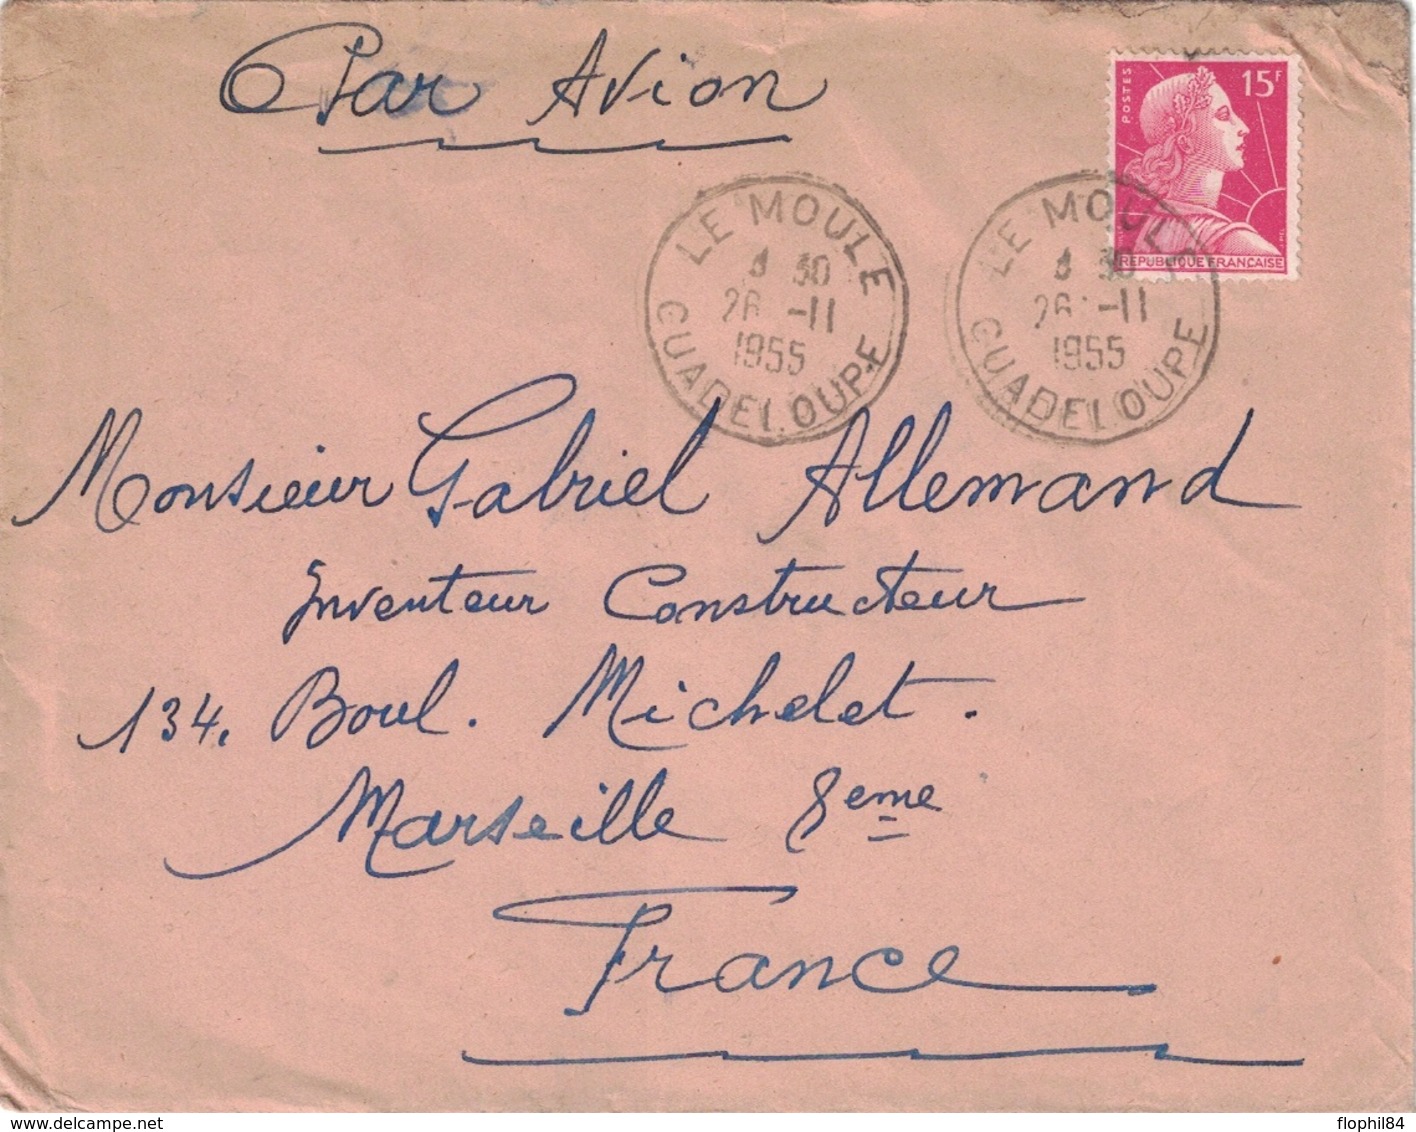 Par Avion
POSTES
15F
REPUBLIQUE FRANÇAISE
LE MOULE
30
26 -11
1955
GUADELOUPE
LE MOULE
30
26 -11
1955
GUADELOUPE
Monsieur Gabriel Allemand
Inventeur Constructeur
134. Boul. Michelet.
Marseille 8eme
France
delcampe.net
flophil84